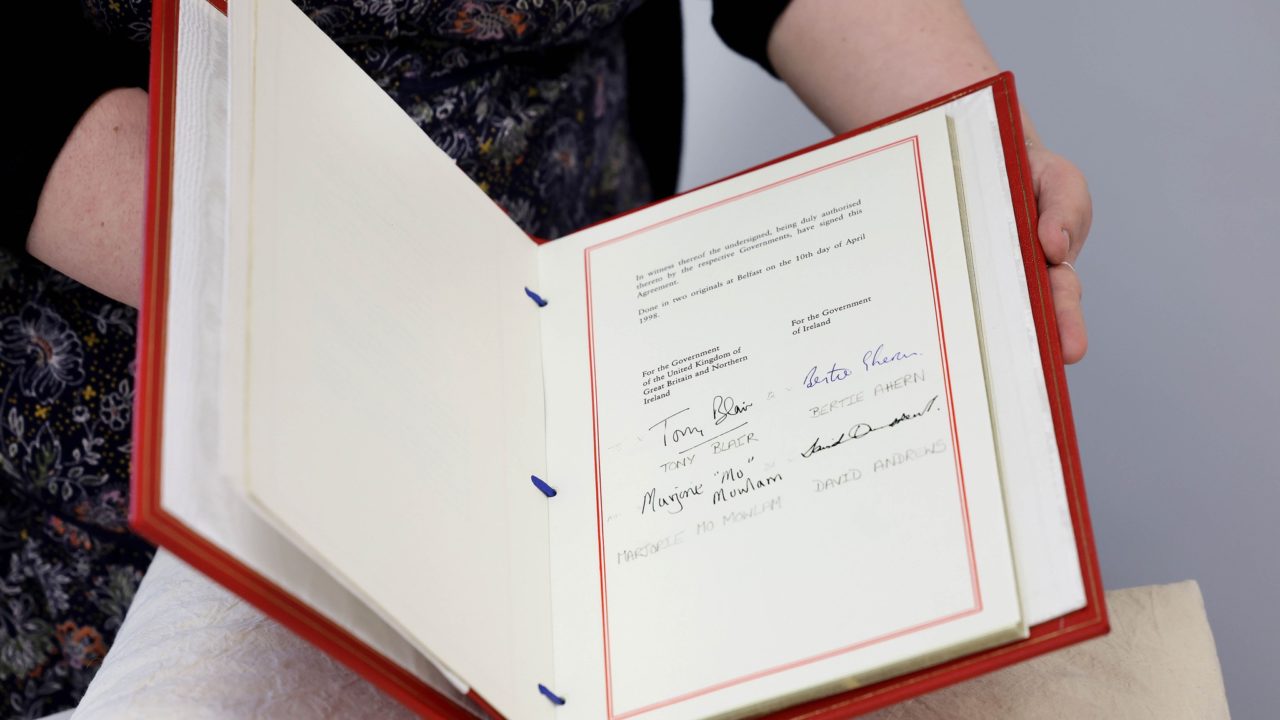 In witness thereof the undersigned, being duly authorised
thereto by the respective Governments, have signed this
Agreement.
Done in two originals at Belfast on the 10th day of April
1998.
For the Government
of the United Kingdom of
Great Britain and Northern
Ireland
Tony Blair
TONY BLAIR
Marjorie "Mo"
Mowlam
MARJORIE MO MOWLAM
For the Government
of Ireland
Bertie Ahern
BERTIE AHERN
David Andrews
DAVID ANDREWS